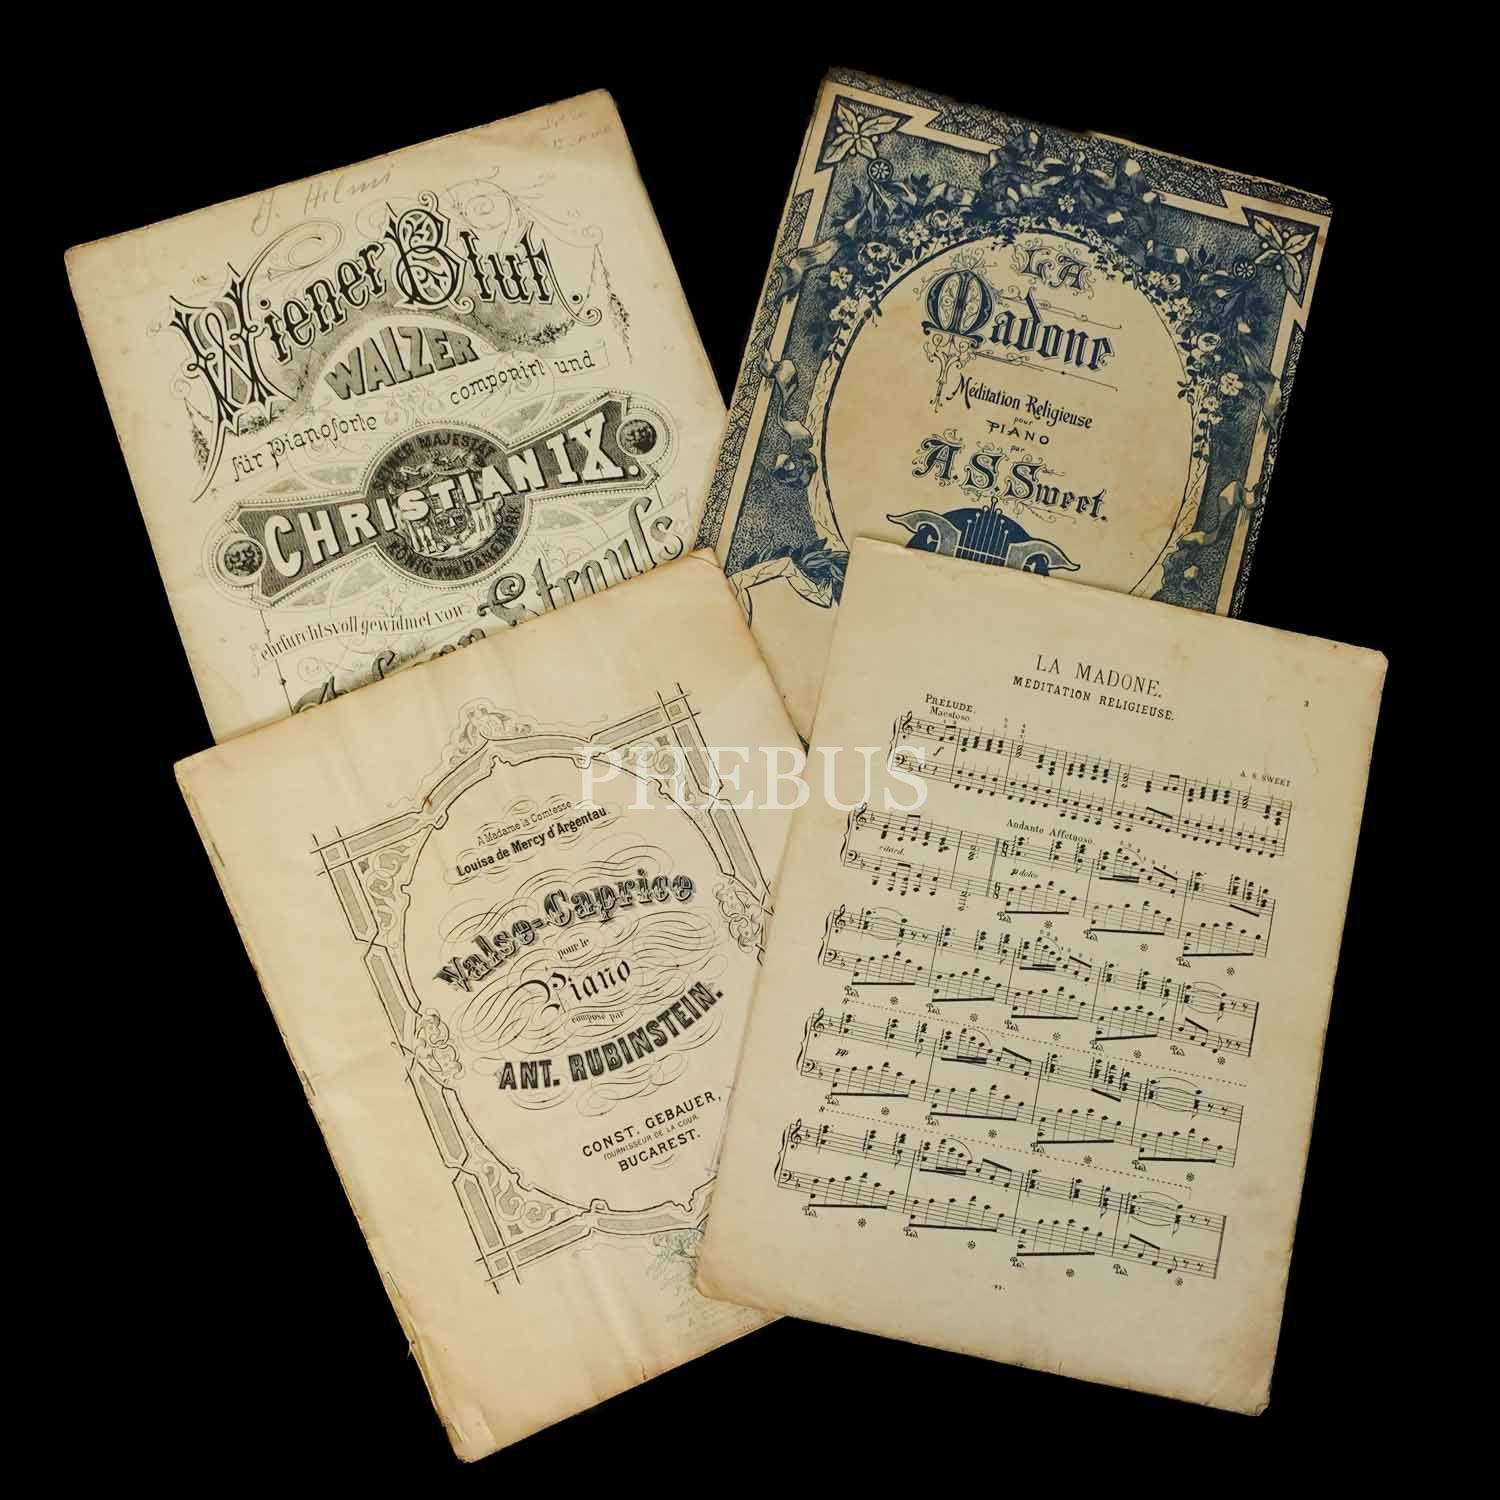 Hilmi
Wiener Blut.
WALZER
für Pianoforte componirt und
SEINER MAJESTÄT
CHRISTIAN IX.
KÖNIG VON DÄNEMARK
ehrfurchtsvoll gewidmet von
Strauss
LA
Madone
Méditation Religieuse
pour
PIANO
par
A.S. Sweet.
A Madame la Comtesse
Louisa de Mercy d'Argentau.
Valse=Caprice
pour le
Piano
composé par
ANT. RUBINSTEIN.
CONST. GEBAUER,
FOURNISSEUR DE LA COUR.
BUCAREST.
LA MADONE.
MEDITATION RELIGIEUSE.
3
PRÉLUDE.
Maestoso
A. S. SWEET
f
ritard.
Andante Affetuoso.
p dolce
pp
PHEBUS